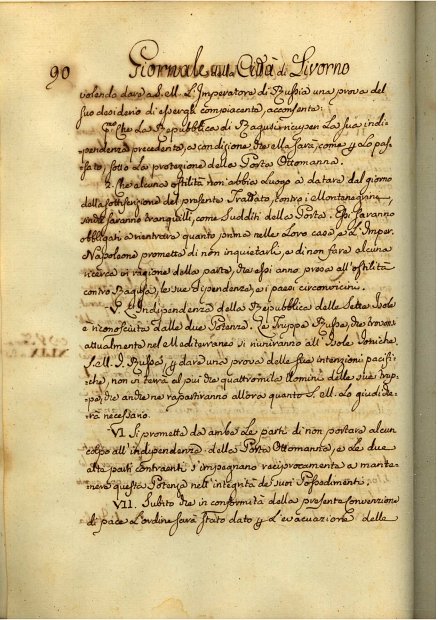 90 Giornale della Città di Livorno
volendo dare a S. M. L'Imperatore di Russia una prova del
suo desiderio di essergli compiacente, acconsente:
1mo Che la Repubblica di Ragusi ricuperi la sua indi-
pendenza precedente, a condizione, che ella sarà, come p lo pas-
sato, sotto la protezione della Porta Ottomanna.
2. Che alcuna ostilità non abbia luogo à datare dal giorno
della sottoscrizione del presente Trattato, contro i Montenegrini,
saranno tranquilli, come Sudditi della Porta. Essi saranno
obbligati a rientrare quanto prima nelle Loro case, e l'Imper.
Napoleone promette di non inquietarli, e di non fare alcuna
ricerca in ragione della parte, che essi anno presa all'ostilità
contro Ragusa, le sue dipendenze, e i paesi circonvicini.
V. L'Indipendenza della Repubblica delle Sette Isole
è riconosciuta dalle due Potenze. Le Truppe Russe, che trovansi
attualmente nel Mediterraneo si riuniranno all'Isole Joniche.
S. M. I. Russa, p dare una prova delle sue intenzioni pacifi-
che, non in terrà al più che quattromila Uomini delle sue trup-
pe, che anche ne ripartiranno allora quanto S. M. Lo giudi che-
rà necessario.
VI. Si promette da ambe Le parti di non portare alcun
colpo all'indipendenza della Porta Ottomanna, e Le due
alte parti contraenti s'impegnano reciprocamente a mante-
nere questa Potenza nell'integrità de suoi Possedimenti.
VII. Subito che in conformità della presente Convenzione
di pace L'ordine sarà stato dato p L'evacuazione delle